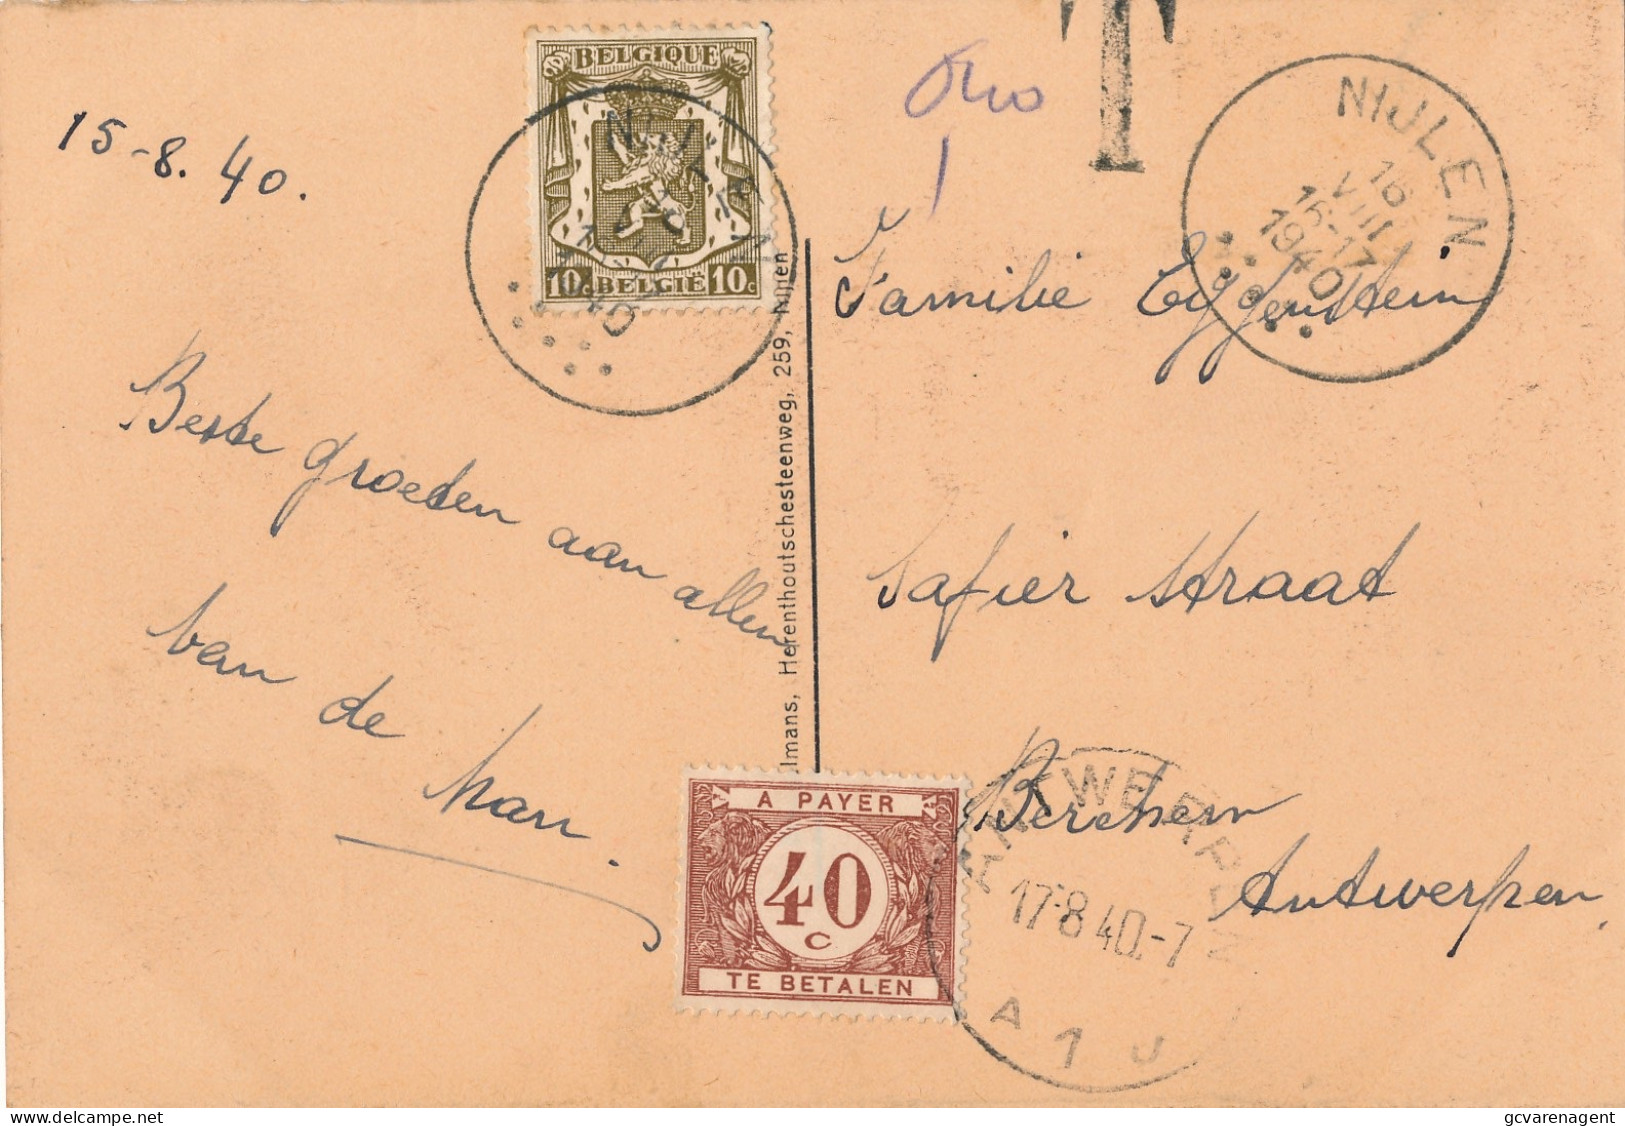 15-8. 40.
BELGIQUE
10c BELGIË 10c
NIJLEN
T
NIJLEN
16
VIII
16-17
1940
Familie Eggenstein
Safier straat
Berchem
Antwerpen.
Beste groeten aan allen
van de
lmans, Herenthoutschesteenweg, 259, Nijlen
A PAYER
40
C
TE BETALEN
ANTWERPEN
17-8 40.-7
A 1 U
delcampe.net
gcvarenagent